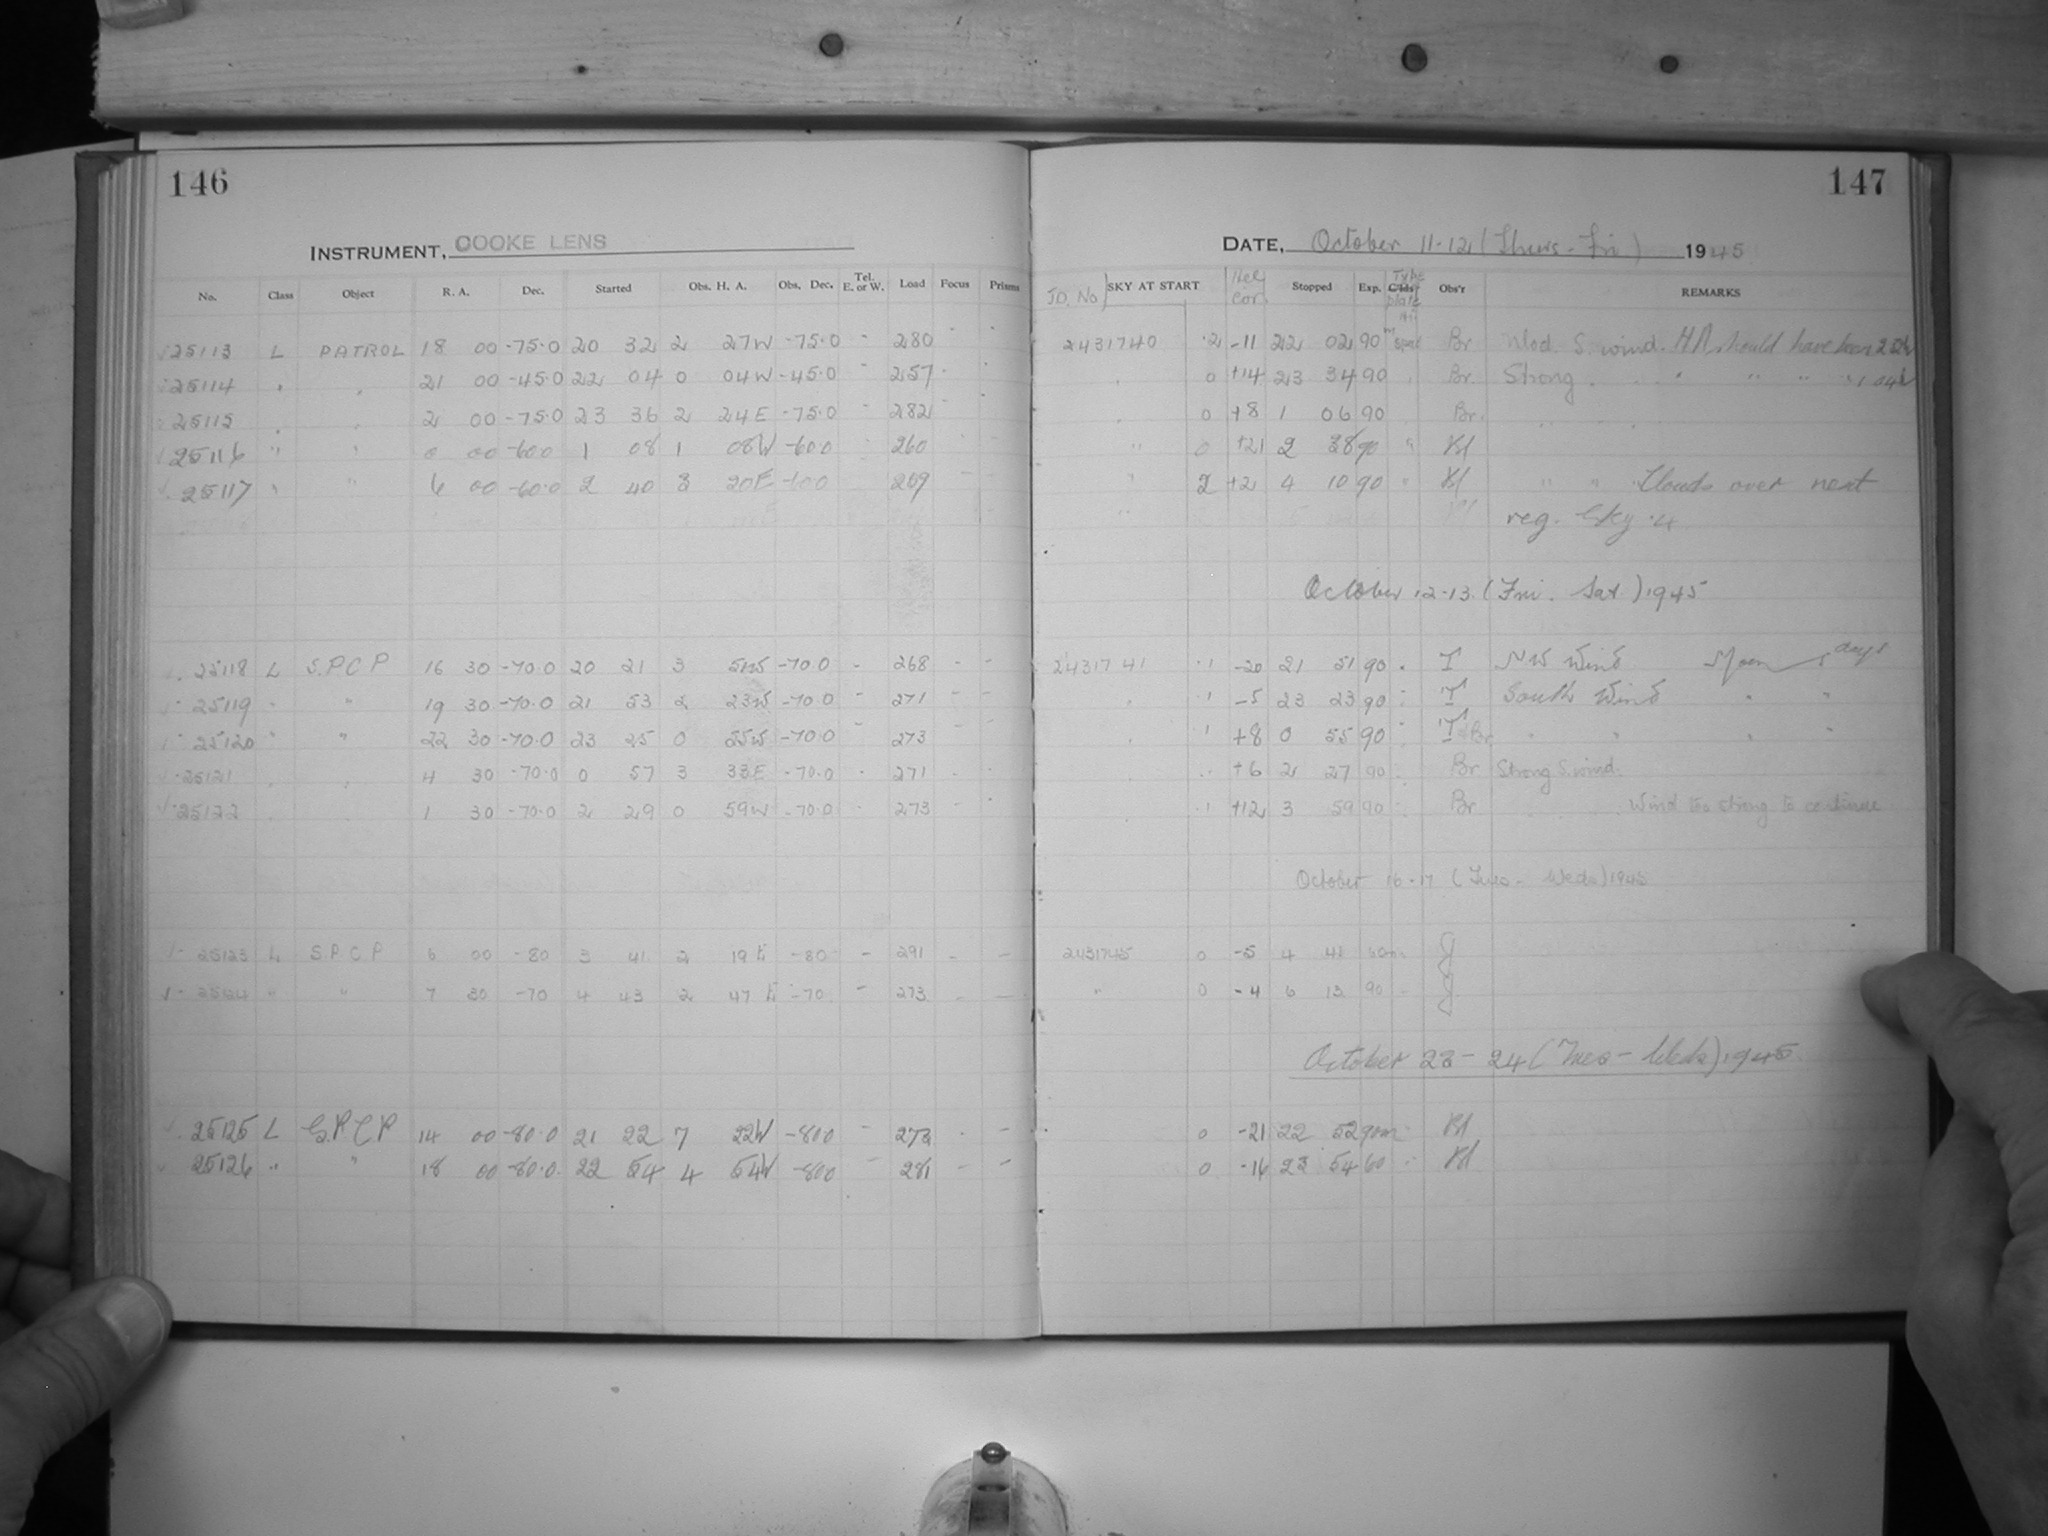 146
INSTRUMENT, COOKE LENS
No. Class Object R. A. Dec. Started Obs. H. A. Obs. Dec. Tel. E. or W. Load Focus Prisms
25113 L PATROL 18 00 -75.0 20 32 2 27W -75.0 - 280
25114 " " 21 00 -45.0 22 04 0 04W -45.0 - 257
25115 " " 2 00 -75.0 23 36 2 24E -75.0 - 282
25116 " " 0 00 -60.0 1 08 1 08W -60.0 260
25117 " " 6 00 -60.0 2 40 3 20E -60.0 209
25118 L S.P.C.P 16 30 -70.0 20 21 3 51W -70.0 - 268 - -
25119 " " 19 30 -70.0 21 53 2 23W -70.0 - 271 - -
25120 " " 22 30 -70.0 23 25 0 55W -70.0 - 273
25121 " " 4 30 -70.0 0 57 3 33E -70.0 - 271
25122 1 30 -70.0 2 29 0 59W -70.0 - 273 - -
25123 L S.P.C.P 6 00 -80 3 41 2 19E -80 - 291 - -
25124 " " 7 30 -70 4 43 2 47E -70 - 273 - -
25125 L S.P.C.P 14 00 -80.0 21 22 7 22W -80.0 - 273 - -
25126 " " 18 00 -80.0 22 54 4 54W -80.0 - 281 - -
147
DATE, October 11-12 (Thurs-Fri) 1945
JD. No SKY AT START Hel Cor Stopped Exp. Type Plate Obs'r REMARKS
2431740 .2 -11 22 02 90m Br Mod. S. wind. HA should have been
0 +14 23 34 90 Br. Strong
0 +8 1 06 90 Br.
" 0 +21 2 38 90 "
2 +2 4 10 90 " " " Clouds over next
reg. Sky .4
October 12-13 (Fri. Sat.) 1945
2431741 .1 -20 21 51 90 T NW Wind Moon days
.1 -5 23 23 90 T South Wind " "
.1 +8 0 55 90 T Br " " " "
+6 2 27 90 Br Strong S. wind.
.1 +12 3 59 90 Br Wind too strong to continue
October 16-17 (Tues - Weds) 1945
2431745 0 -5 4 41 60m J
" 0 -4 6 13 90 J
October 23-24 (Tues - Weds) 1945
0 -21 22 52 90m
0 -16 23 54 60